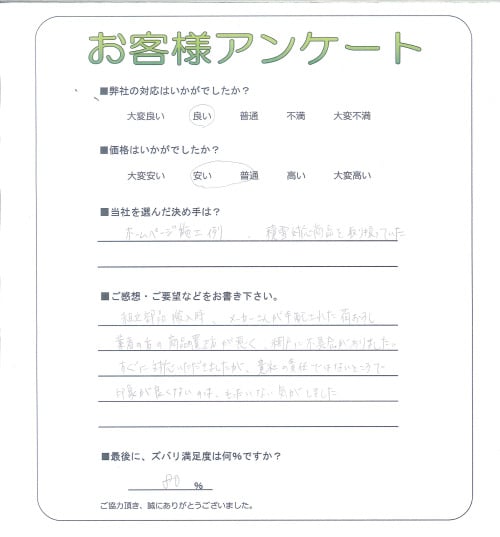 お客様アンケート
■弊社の対応はいかがでしたか？
大変良い 良い 普通 不満 大変不満
■価格はいかがでしたか？
大変安い 安い 普通 高い 大変高い
■当社を選んだ決め手は？
ホームページ施工例、積雪対応商品を取り扱っていた
■ご感想・ご要望などをお書き下さい。
組立部品搬入時、メーカーさんが手配された荷おろし
業者の方の商品の置き方が悪く、網戸に不具合がありました。
すぐに対応いただきましたが、貴社の責任ではないところで
印象が良くないのは、もったいない気がしました
■最後に、ズバリ満足度は何％ですか？
80 %
ご協力頂き、誠にありがとうございました。